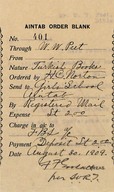 AINTAB ORDER BLANK
No. 401
Through W. W. Peet
From
Nature Turkish Books
Ordered by H. C. Norton
Send to Girls School
Aintab
By Registered Mail
Expense St 2.00
Charge in a/c to
Payment Deposit St 2.00
Date August 30. 1909.
per